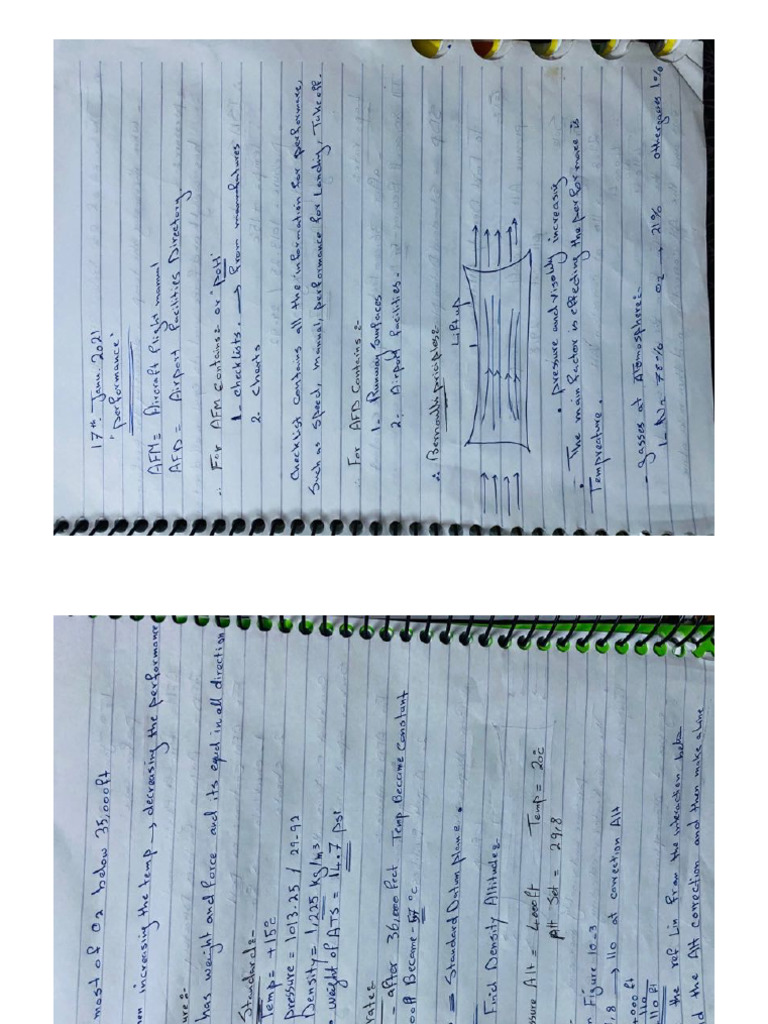 17th. Janu. 2021
"performance"
AFM = Aircraft Flight manual
AFD = Airport Facilities Directory
∴ For AFM contains:- or "POH"
1- checklists. → From manufatures
2. charts
checklist contains all the information for performare,
Such as speed, manual, performance for Landing, Takeoff.
∴ For AFD Contains:-
1- Runway Surfaces
2:- Airport Facilities-
∴ Bernoulli priciples:-
Lift up
• pressure and visolity increasing
• The main factor is effecting the performace is
Tempreature.
- gasses at Atomosphere:-
1- N2 78% O2 → 21% other gases 1%
most of O2 below 35,000ft
increasing the temp → decreasing the performance
ure:-
has weight and force and its equal in all direction
Standard:-
Temp = +15°c
pressure = 1013.25 / 29-92
Density = 1,225 kg/m3
weight of ATS = 14.7 psi
rate:-
- after 36,000 feet Temp Become Constant
Become -57°c
= Standard Datum plane.
Find Density Altitude:-
ssure Alt = 4000ft Temp = 20c
Alt Set = 29,8
n Figure 10-3
,8 → 110 at correction Alt
4000 ft
110
110 ft
the ref Lin From the interaction
d the Alt correction and then make a line